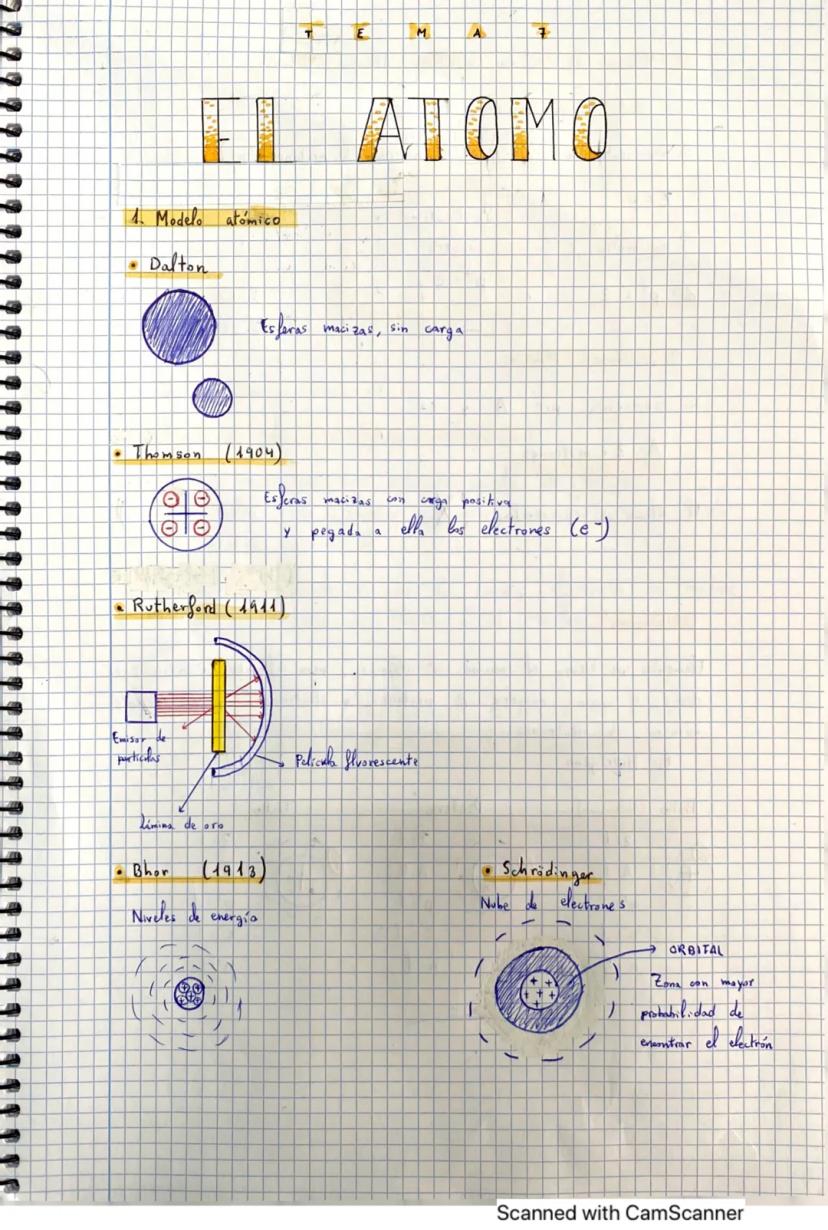 TEMA 7
EL ATOMO
1. Modelo atómico
• Dalton
Esferas macizas, sin carga
• Thomson (1904)
Esferas macizas con carga positiva
y pegada a ella los electrones (e-)
• Rutherford (1911)
Emisor de
partículas
Película fluorescente
Lámina de oro
• Bhor (1913)
Niveles de energía
• Schrödinger
Nube de electrones
ORBITAL
Zona con mayor
probabilidad de
encontrar el electrón
Scanned with CamScanner